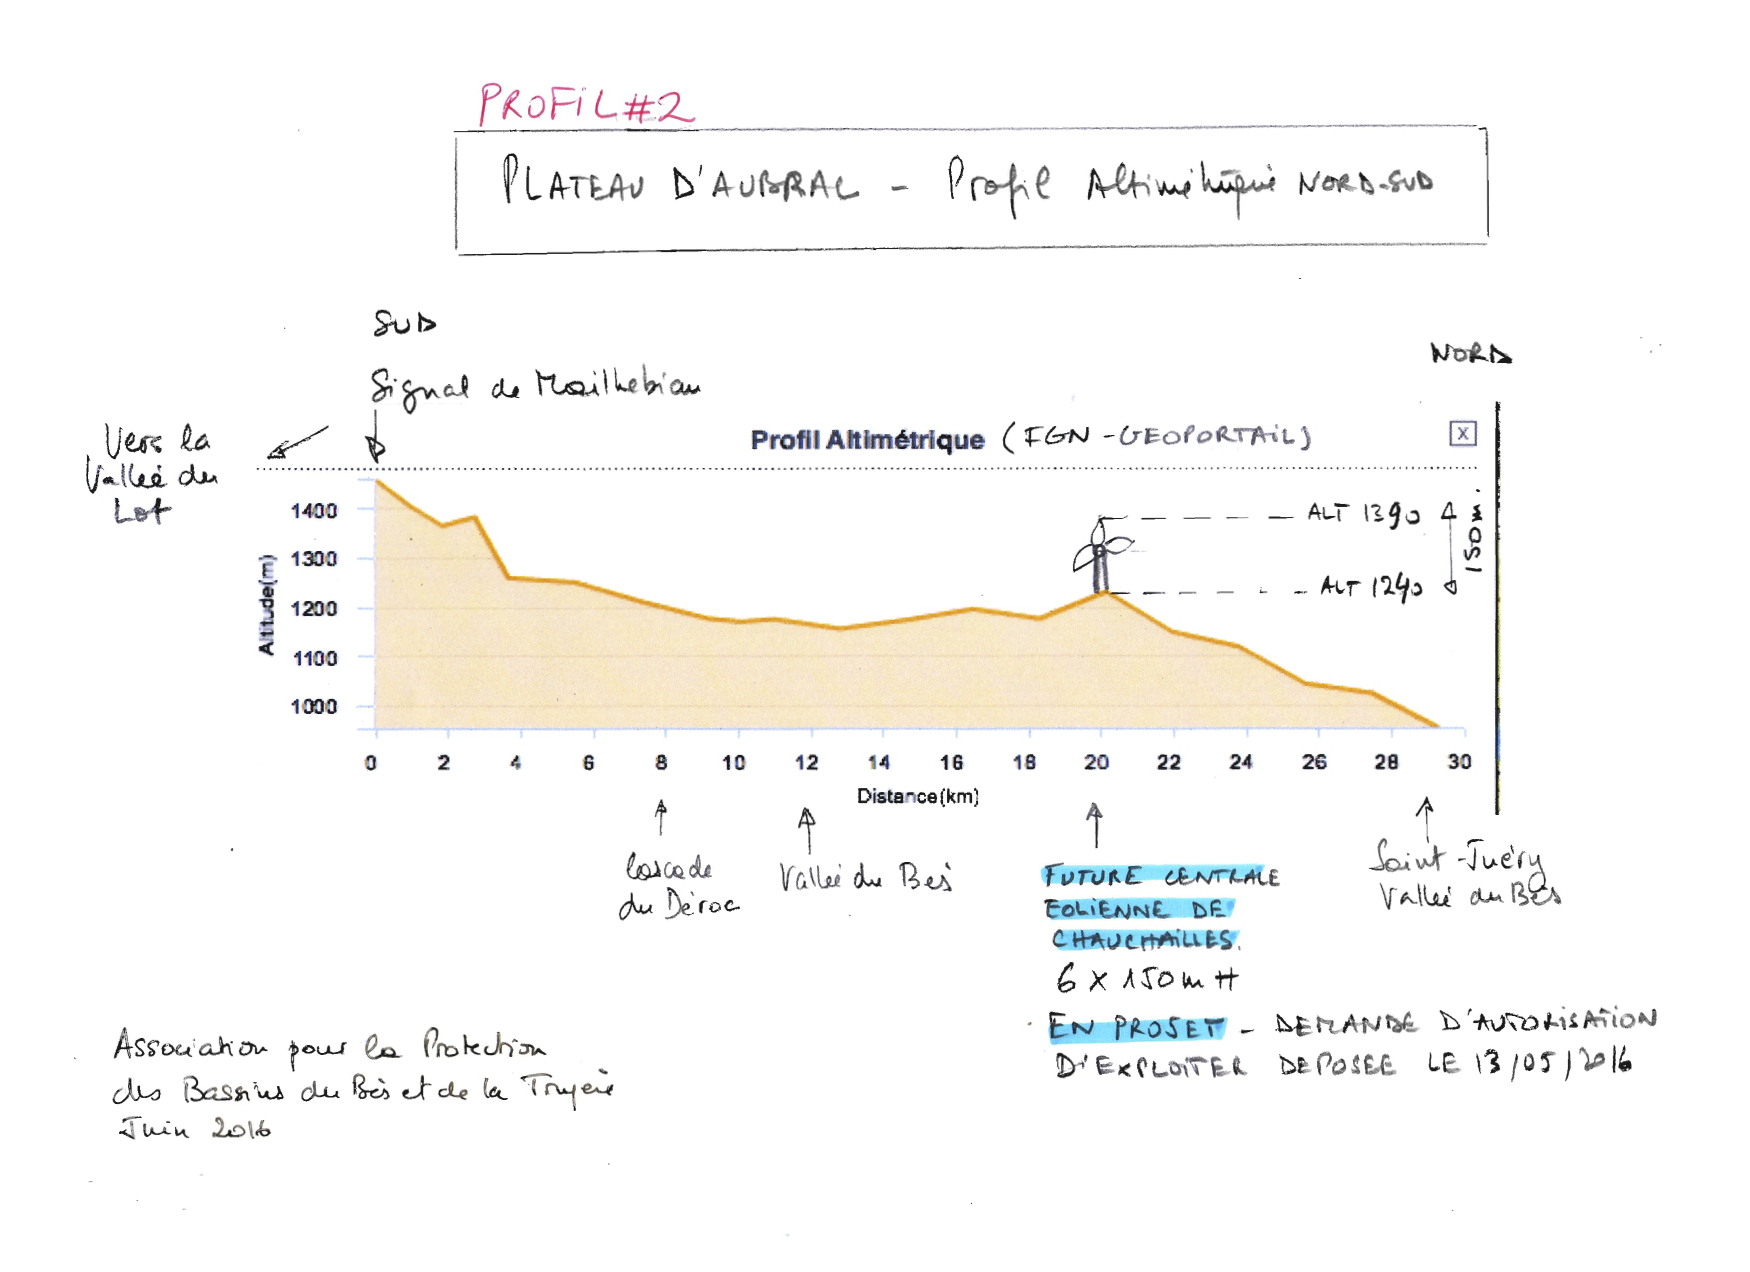 PROFIL #2
PLATEAU D'AUBRAC - Profil Altimétrique NORD-SUD
SUD
NORD
Signal de Mailhebiau
Vers la
Vallée du
Lot
Profil Altimétrique (IGN - GEOPORTAIL)
X
1400
1300
1200
1100
1000
Altitude(m)
ALT 1390
150 m.
ALT 1240
0 2 4 6 8 10 12 14 16 18 20 22 24 26 28 30
Distance(km)
Cascade
du Déroc
Vallée du Bès
FUTURE CENTRALE
EOLIENNE DE
CHAUCHAILLES.
6 X 150 m H
EN PROJET - DEMANDE D'AUTORISATION
D'EXPLOITER DEPOSEE LE 13/05/2016
Saint-Juéry
Vallée du Bès
Association pour la Protection
des Bassins du Bès et de la Truyère
Juin 2016